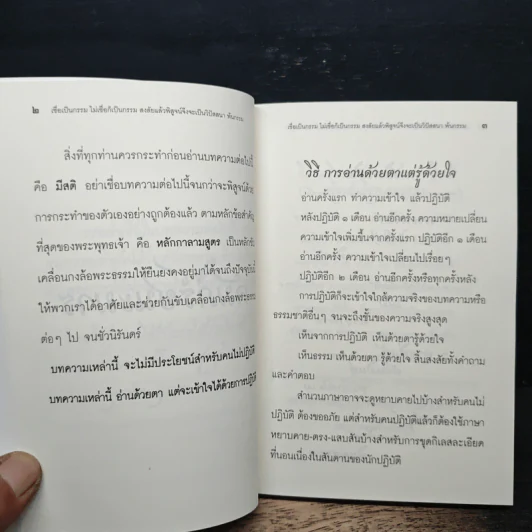 ๒ เชื่อเป็นกรรม ไม่เชื่อก็เป็นกรรม สงสัยแล้วพิสูจน์จึงจะเป็นวิปัสสนา พ้นกรรม
สิ่งที่ทุกท่านควรกระทำก่อนอ่านบทความต่อไปนี้
คือ มีสติ อย่าเชื่อบทความต่อไปนี้จนกว่าจะพิสูจน์ด้วย
การกระทำของตัวเองอย่างถูกต้องแล้ว ตามหลักข้อสำคัญ
ที่สุดของพระพุทธเจ้า คือ หลักกาลามสูตร เป็นหลักข้อ
เคลื่อนกงล้อพระธรรมให้ยืนยงคงอยู่มาได้จนถึงปัจจุบัน
ให้พวกเราได้อาศัยและช่วยกันขับเคลื่อนกงล้อพระธรรม
ต่อๆ ไป จนชั่วนิรันดร์
บทความเหล่านี้ จะไม่มีประโยชน์สำหรับคนไม่ปฏิบัติ
บทความเหล่านี้ อ่านด้วยตา แต่จะเข้าใจได้ด้วยการปฏิบัติ
เชื่อเป็นกรรม ไม่เชื่อก็เป็นกรรม สงสัยแล้วพิสูจน์จึงจะเป็นวิปัสสนา พ้นกรรม ๓
วิธี การอ่านด้วยตาแต่รู้ด้วยใจ
อ่านครั้งแรก ทำความเข้าใจ แล้วปฏิบัติ
หลังปฏิบัติ ๑ เดือน อ่านอีกครั้ง ความหมายเปลี่ยน
ความเข้าใจเพิ่มขึ้นจากครั้งแรก ปฏิบัติอีก ๑ เดือน
อ่านอีกครั้ง ความเข้าใจเปลี่ยนไปเรื่อยๆ
ปฏิบัติอีก ๒ เดือน อ่านอีกครั้งหรือทุกครั้งหลัง
การปฏิบัติก็จะเข้าใจใกล้ความจริงของบทความหรือ
ธรรมชาติอื่นๆ จนจะถึงชั้นของความจริงสูงสุด
เห็นจากการปฏิบัติ เห็นด้วยตารู้ด้วยใจ
เห็นธรรม เห็นด้วยตา รู้ด้วยใจ สิ้นสงสัยทั้งคำถาม
และคำตอบ
สำนวนภาษาอาจจะดูหยาบคายไปบ้างสำหรับคนไม่
ปฏิบัติ ต้องขออภัย แต่สำหรับคนปฏิบัติแล้วก็ต้องใช้ภาษา
หยาบคาย-ตรง-แสบสันบ้างสำหรับการขุดกิเลสละเอียด
ที่นอนเนื่องในสันดานของนักปฏิบัติ